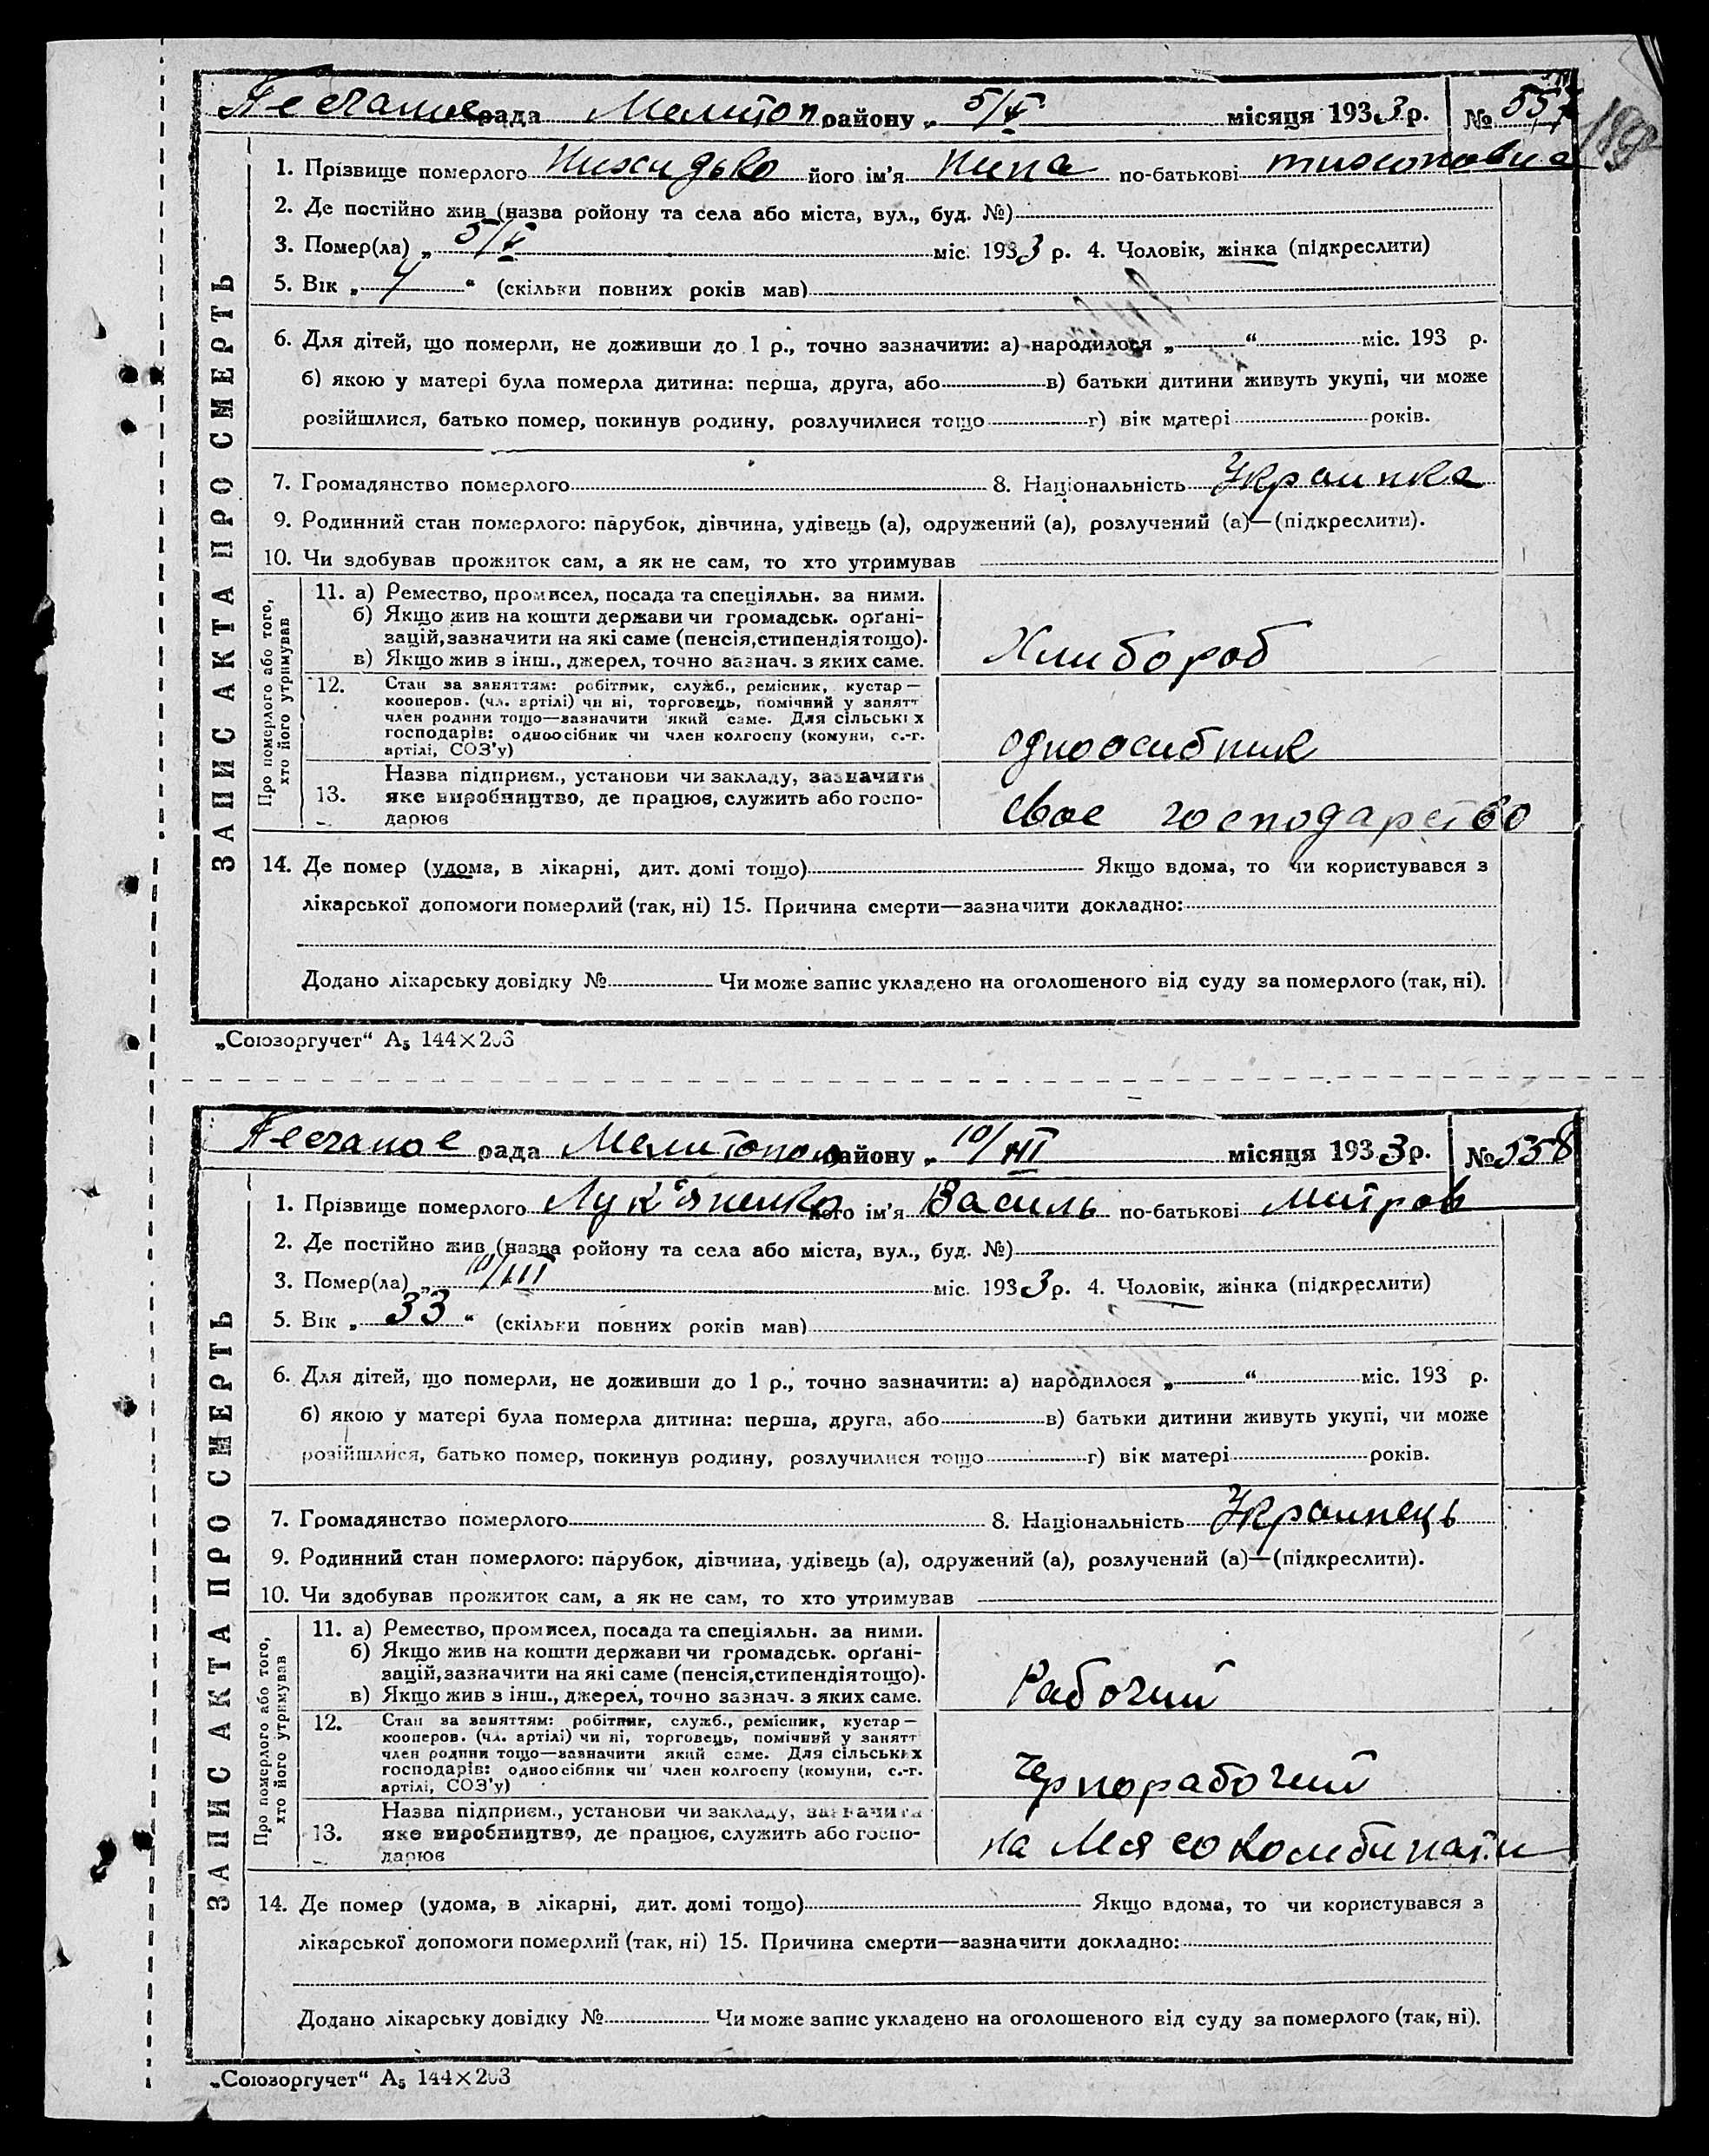 Песчаное рада Мелитоп району „ 5/V місяця 1933 р. № 557
1. Прізвище померлого його ім'я Нина по-батькові тихоновна
2. Де постійно жив (назва ройону та села або міста, вул., буд. №)
3. Помер(ла) „ 5/V міс. 1933 р. 4. Чоловік, жінка (підкреслити)
5. Вік „ “ (скільки повних років мав)
6. Для дітей, що померли, не доживши до 1 р., точно зазначити: а) народилося „ “ міс. 193 р.
б) якою у матері була померла дитина: перша, друга, або в) батьки дитини живуть укупі, чи може
розійшлися, батько помер, покинув родину, розлучилися тощо г) вік матері років.
7. Громадянство померлого 8. Національність Украинка
9. Родинний стан померлого: парубок, дівчина, удівець (а), одружений (а), розлучений (а)—(підкреслити).
10. Чи здобував прожиток сам, а як не сам, то хто утримував
ЗАПИС АКТА ПРО СМЕРТЬ
Про померлого або того,
хто його утримував
11. а) Ремество, промисел, посада та спеціяльн. за ними.
б) Якщо жив на кошти держави чи громадськ. орґані-
зацій, зазначити на які саме (пенсія, стипендія тощо).
в) Якщо жив з інш., джерел, точно зазнач. з яких саме.
Хлибороб
12. Стан за заняттям: робітник, служб., ремісник, кустар—
кооперов. (чл. артілі) чи ні, торговець, помічний у занятт
член родини тощо—зазначити який саме. Для сільських
господарів: одноосібник чи член колгоспу (комуни, с.-г.
артілі, СОЗ'у)
одноосибник
13. Назва підприєм., установи чи закладу, зазначити
яке виробництво, де працює, служить або госпо-
дарює
свое господарство
14. Де помер (удома, в лікарні, дит. домі тощо) Якщо вдома, то чи користувався з
лікарської допомоги померлий (так, ні) 15. Причина смерти—зазначити докладно:
Додано лікарську довідку № Чи може запис укладено на оголошеного від суду за померлого (так, ні).
„Союзоргучет“ А5 144×203
Песчаное рада Мелитопол району „ 10/III місяця 1933 р. № 558
1. Прізвище померлого Лук'яненко його ім'я Василь по-батькові Митров
2. Де постійно жив (назва ройону та села або міста, вул., буд. №)
3. Помер(ла) „ 10/III міс. 1933 р. 4. Чоловік, жінка (підкреслити)
5. Вік „ 33 “ (скільки повних років мав)
6. Для дітей, що померли, не доживши до 1 р., точно зазначити: а) народилося „ “ міс. 193 р.
б) якою у матері була померла дитина: перша, друга, або в) батьки дитини живуть укупі, чи може
розійшлися, батько помер, покинув родину, розлучилися тощо г) вік матері років.
7. Громадянство померлого 8. Національність Украинець
9. Родинний стан померлого: парубок, дівчина, удівець (а), одружений (а), розлучений (а)—(підкреслити).
10. Чи здобував прожиток сам, а як не сам, то хто утримував
ЗАПИС АКТА ПРО СМЕРТЬ
Про померлого або того,
хто його утримував
11. а) Ремество, промисел, посада та спеціяльн. за ними.
б) Якщо жив на кошти держави чи громадськ. орґані-
зацій, зазначити на які саме (пенсія, стипендія тощо).
в) Якщо жив з інш., джерел, точно зазнач. з яких саме.
Рабочий
12. Стан за заняттям: робітник, служб., ремісник, кустар—
кооперов. (чл. артілі) чи ні, торговець, помічний у занятт
член родини тощо—зазначити який саме. Для сільських
господарів: одноосібник чи член колгоспу (комуни, с.-г.
артілі, СОЗ'у)
чернорабочий
13. Назва підприєм., установи чи закладу, зазначити
яке виробництво, де працює, служить або госпо-
дарює
на Мясокомбинати
14. Де помер (удома, в лікарні, дит. домі тощо) Якщо вдома, то чи користувався з
лікарської допомоги померлий (так, ні) 15. Причина смерти—зазначити докладно:
Додано лікарську довідку № Чи може запис укладено на оголошеного від суду за померлого (так, ні).
„Союзоргучет“ А5 144×203